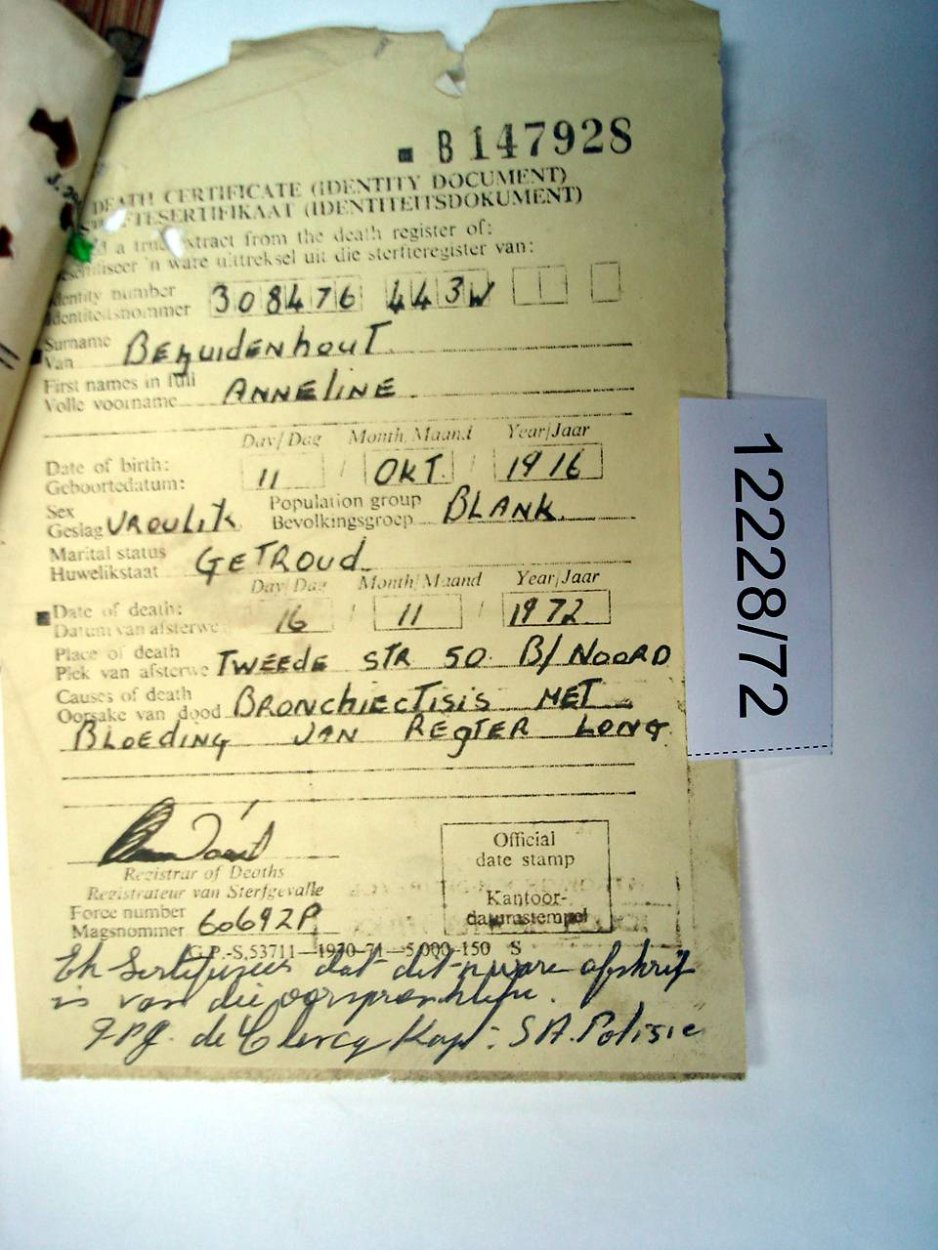 B 147928
DEATH CERTIFICATE (IDENTITY DOCUMENT)
TESERTIFIKAAT (IDENTITEITSDOKUMENT)
a true extract from the death register of:
'n ware uittreksel uit die sterfteregister van:
Identity number
Identiteitsnommer 308476 443W
Surname
Van Bezuidenhout
First names in full
Volle voorname ANNELINE
Day/Dag Month/Maand Year/Jaar
Date of birth:
Geboortedatum: 11 / OKT. / 1916
Sex
Geslag VROULIK Population group
Bevolkingsgroep BLANK.
Marital status
Huwelikstaat GETROUD
Day/Dag Month/Maand Year/Jaar
Date of death:
Datum van afsterwe 16 / 11 / 1972
Place of death
Plek van afsterwe TWEEDE STR 50 B/NOORD
Causes of death
Oorsake van dood BRONCHIECTISIS MET
BLOEDING VAN REGTER LONG
Registrar of Deaths
Registrateur van Sterfgevalle
Official
date stamp
Kantoor-
datumstempel
Force number
Magsnommer 60692P
G.P.-S.53711—1970-71—5,000-150 S
Ek Sertifiseer dat dit 'n ware afskrif
is van die oorspronklike.
de Clercq Kapt: S.A. Polisie
12228/72